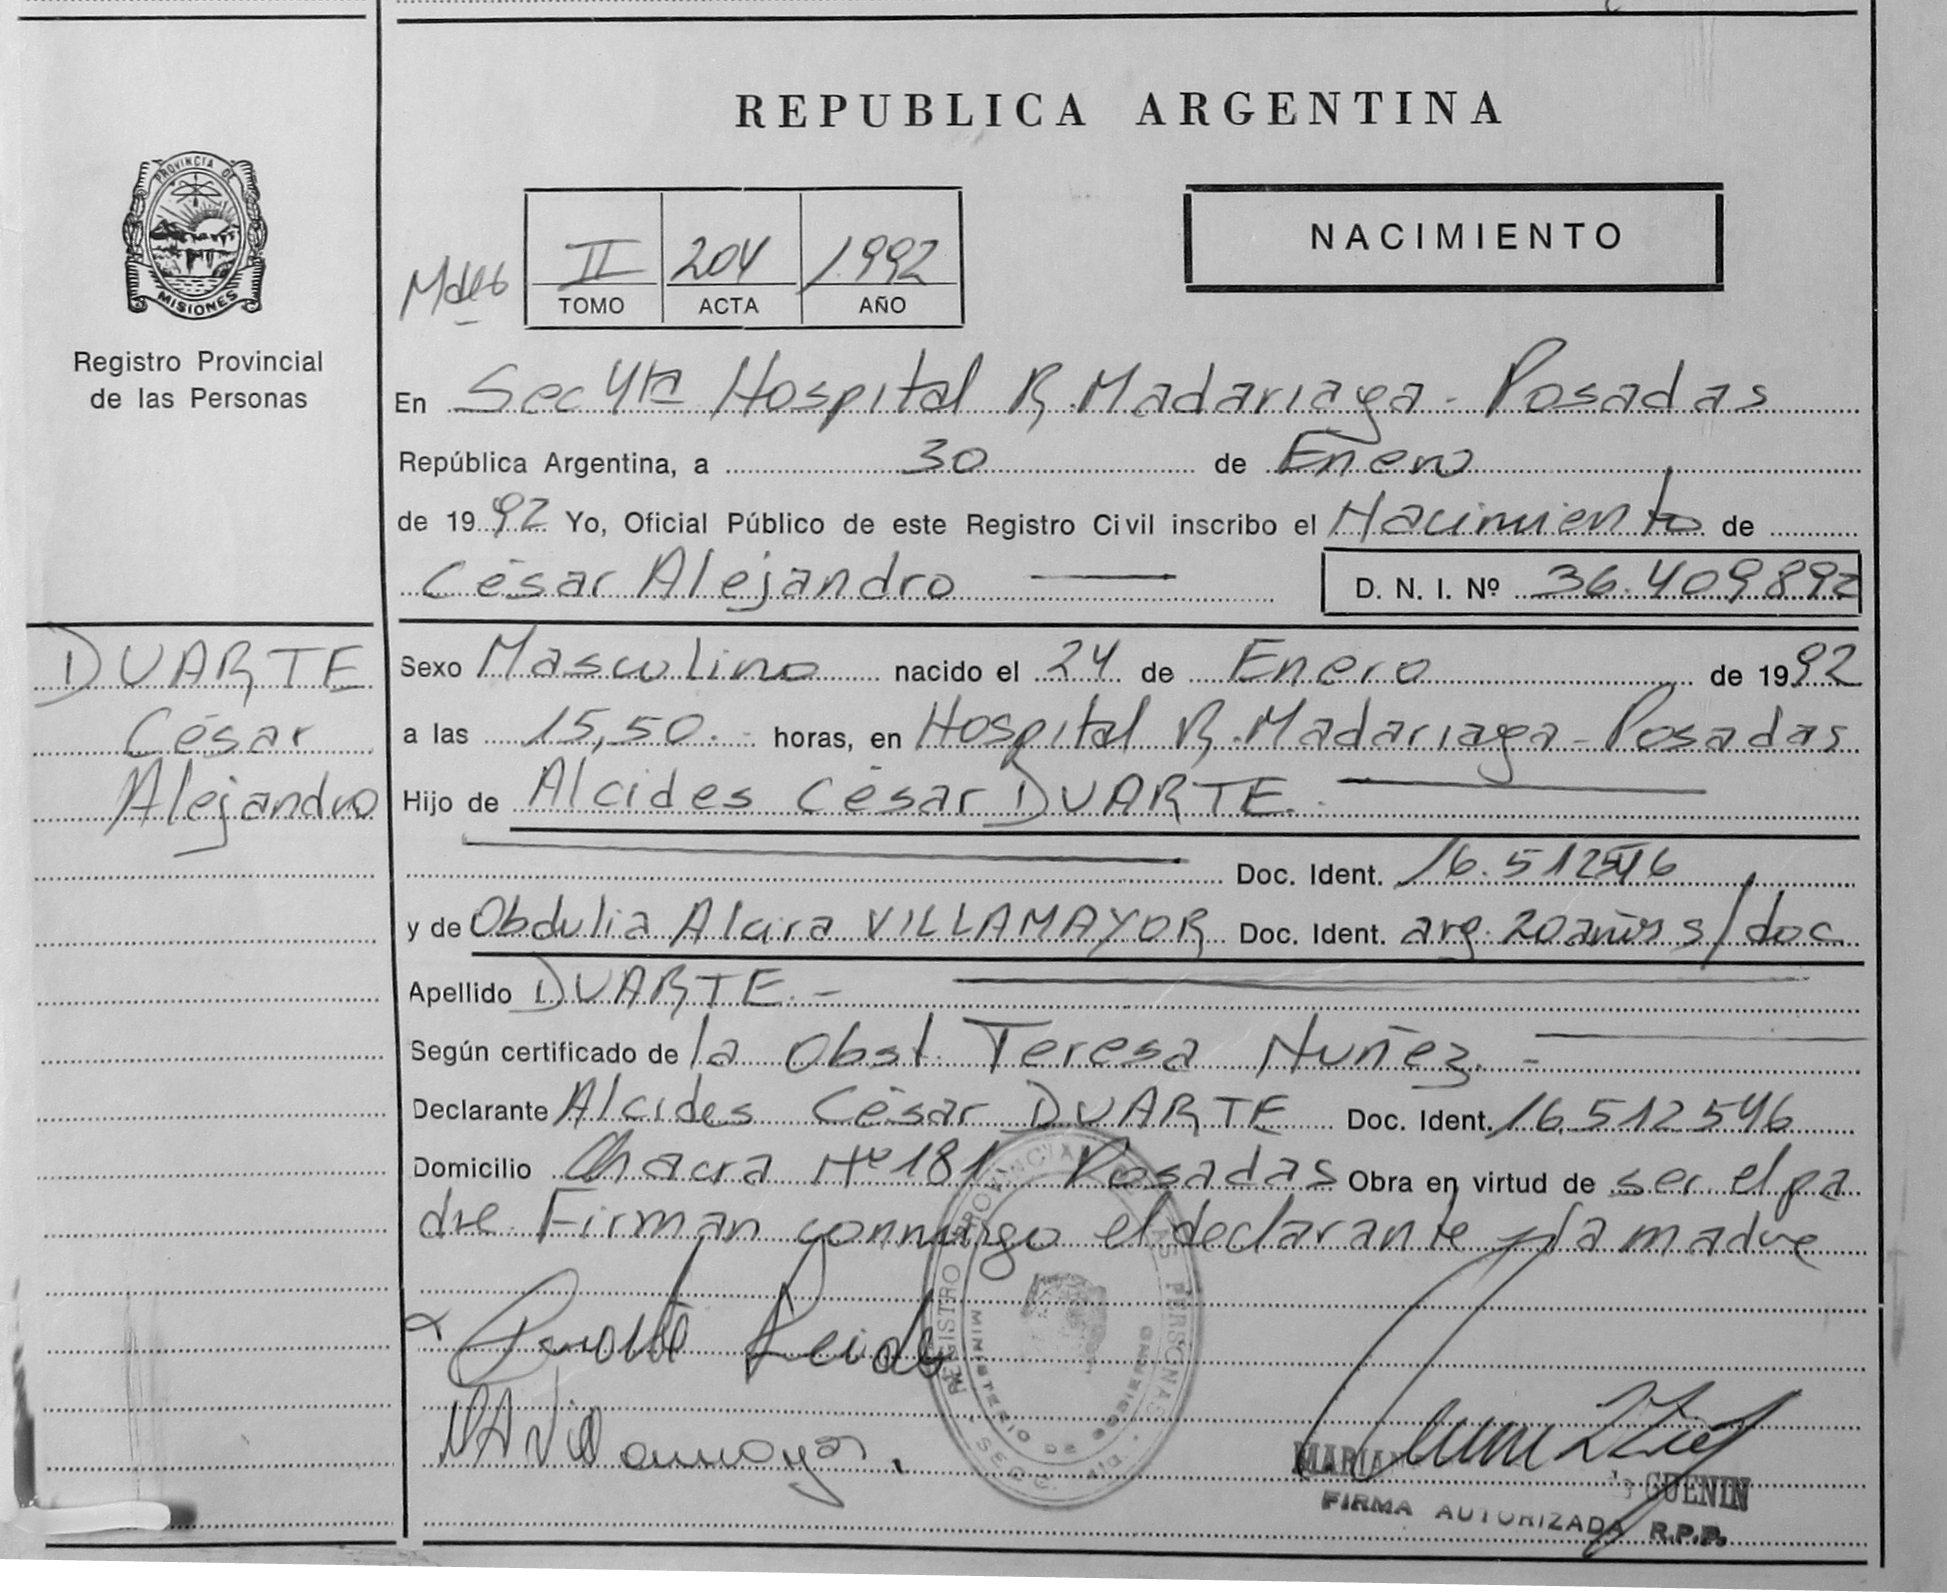 REPUBLICA ARGENTINA
PROVINCIA DE
MISIONES
Registro Provincial
de las Personas
NACIMIENTO
II 204 1992
TOMO ACTA AÑO
En Sec 4ta Hospital R. Madariaga - Posadas
República Argentina, a 30 de Enero
de 1992 Yo, Oficial Público de este Registro Civil inscribo el Nacimiento de
César Alejandro D. N. I. Nº 36.409892
DUARTE
César
Alejandro
Sexo Masculino nacido el 24 de Enero de 1992
a las 15,50.- horas, en Hospital R. Madariaga - Posadas
Hijo de Alcides César DUARTE.
Doc. Ident. 16.512546
y de Obdulia Alcira VILLAMAYOR Doc. Ident. arg. 20 años s/doc
Apellido DUARTE.-
Según certificado de la Obst. Teresa Nuñez.-
Declarante Alcides César DUARTE Doc. Ident. 16.512546
Domicilio Chacra Nº 181 Posadas Obra en virtud de ser el pa
dre. Firman conmigo el declarante y la madre
REGISTRO PROVINCIAL DE LAS PERSONAS
MINISTERIO DE GOBIERNO
Villamayor.
GUENIN
FIRMA AUTORIZADA R.P.P.